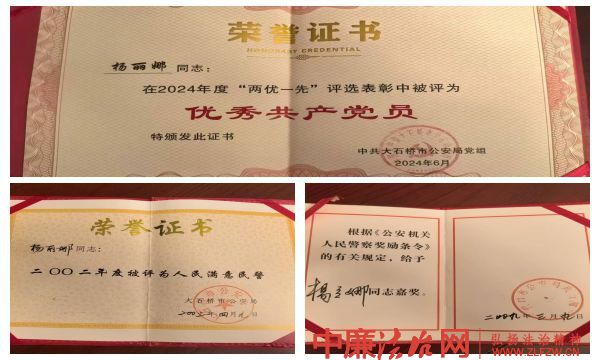 荣誉证书
HONORARY CREDENTIAL
杨丽娜 同志：
在2024年度“两优一先”评选表彰中被评为
优秀共产党员
特颁发此证书
中共大石桥市公安局党组
2024年6月
荣誉证书
杨丽娜同志：
二〇〇二年度被评为人民满意民警
大石桥市公安局
根据《公安机关
人民警察奖励条令》
的有关规定，给予
杨丽娜同志嘉奖。
中廉法治网
弘扬法治精神
WWW.ZLFZW.CN